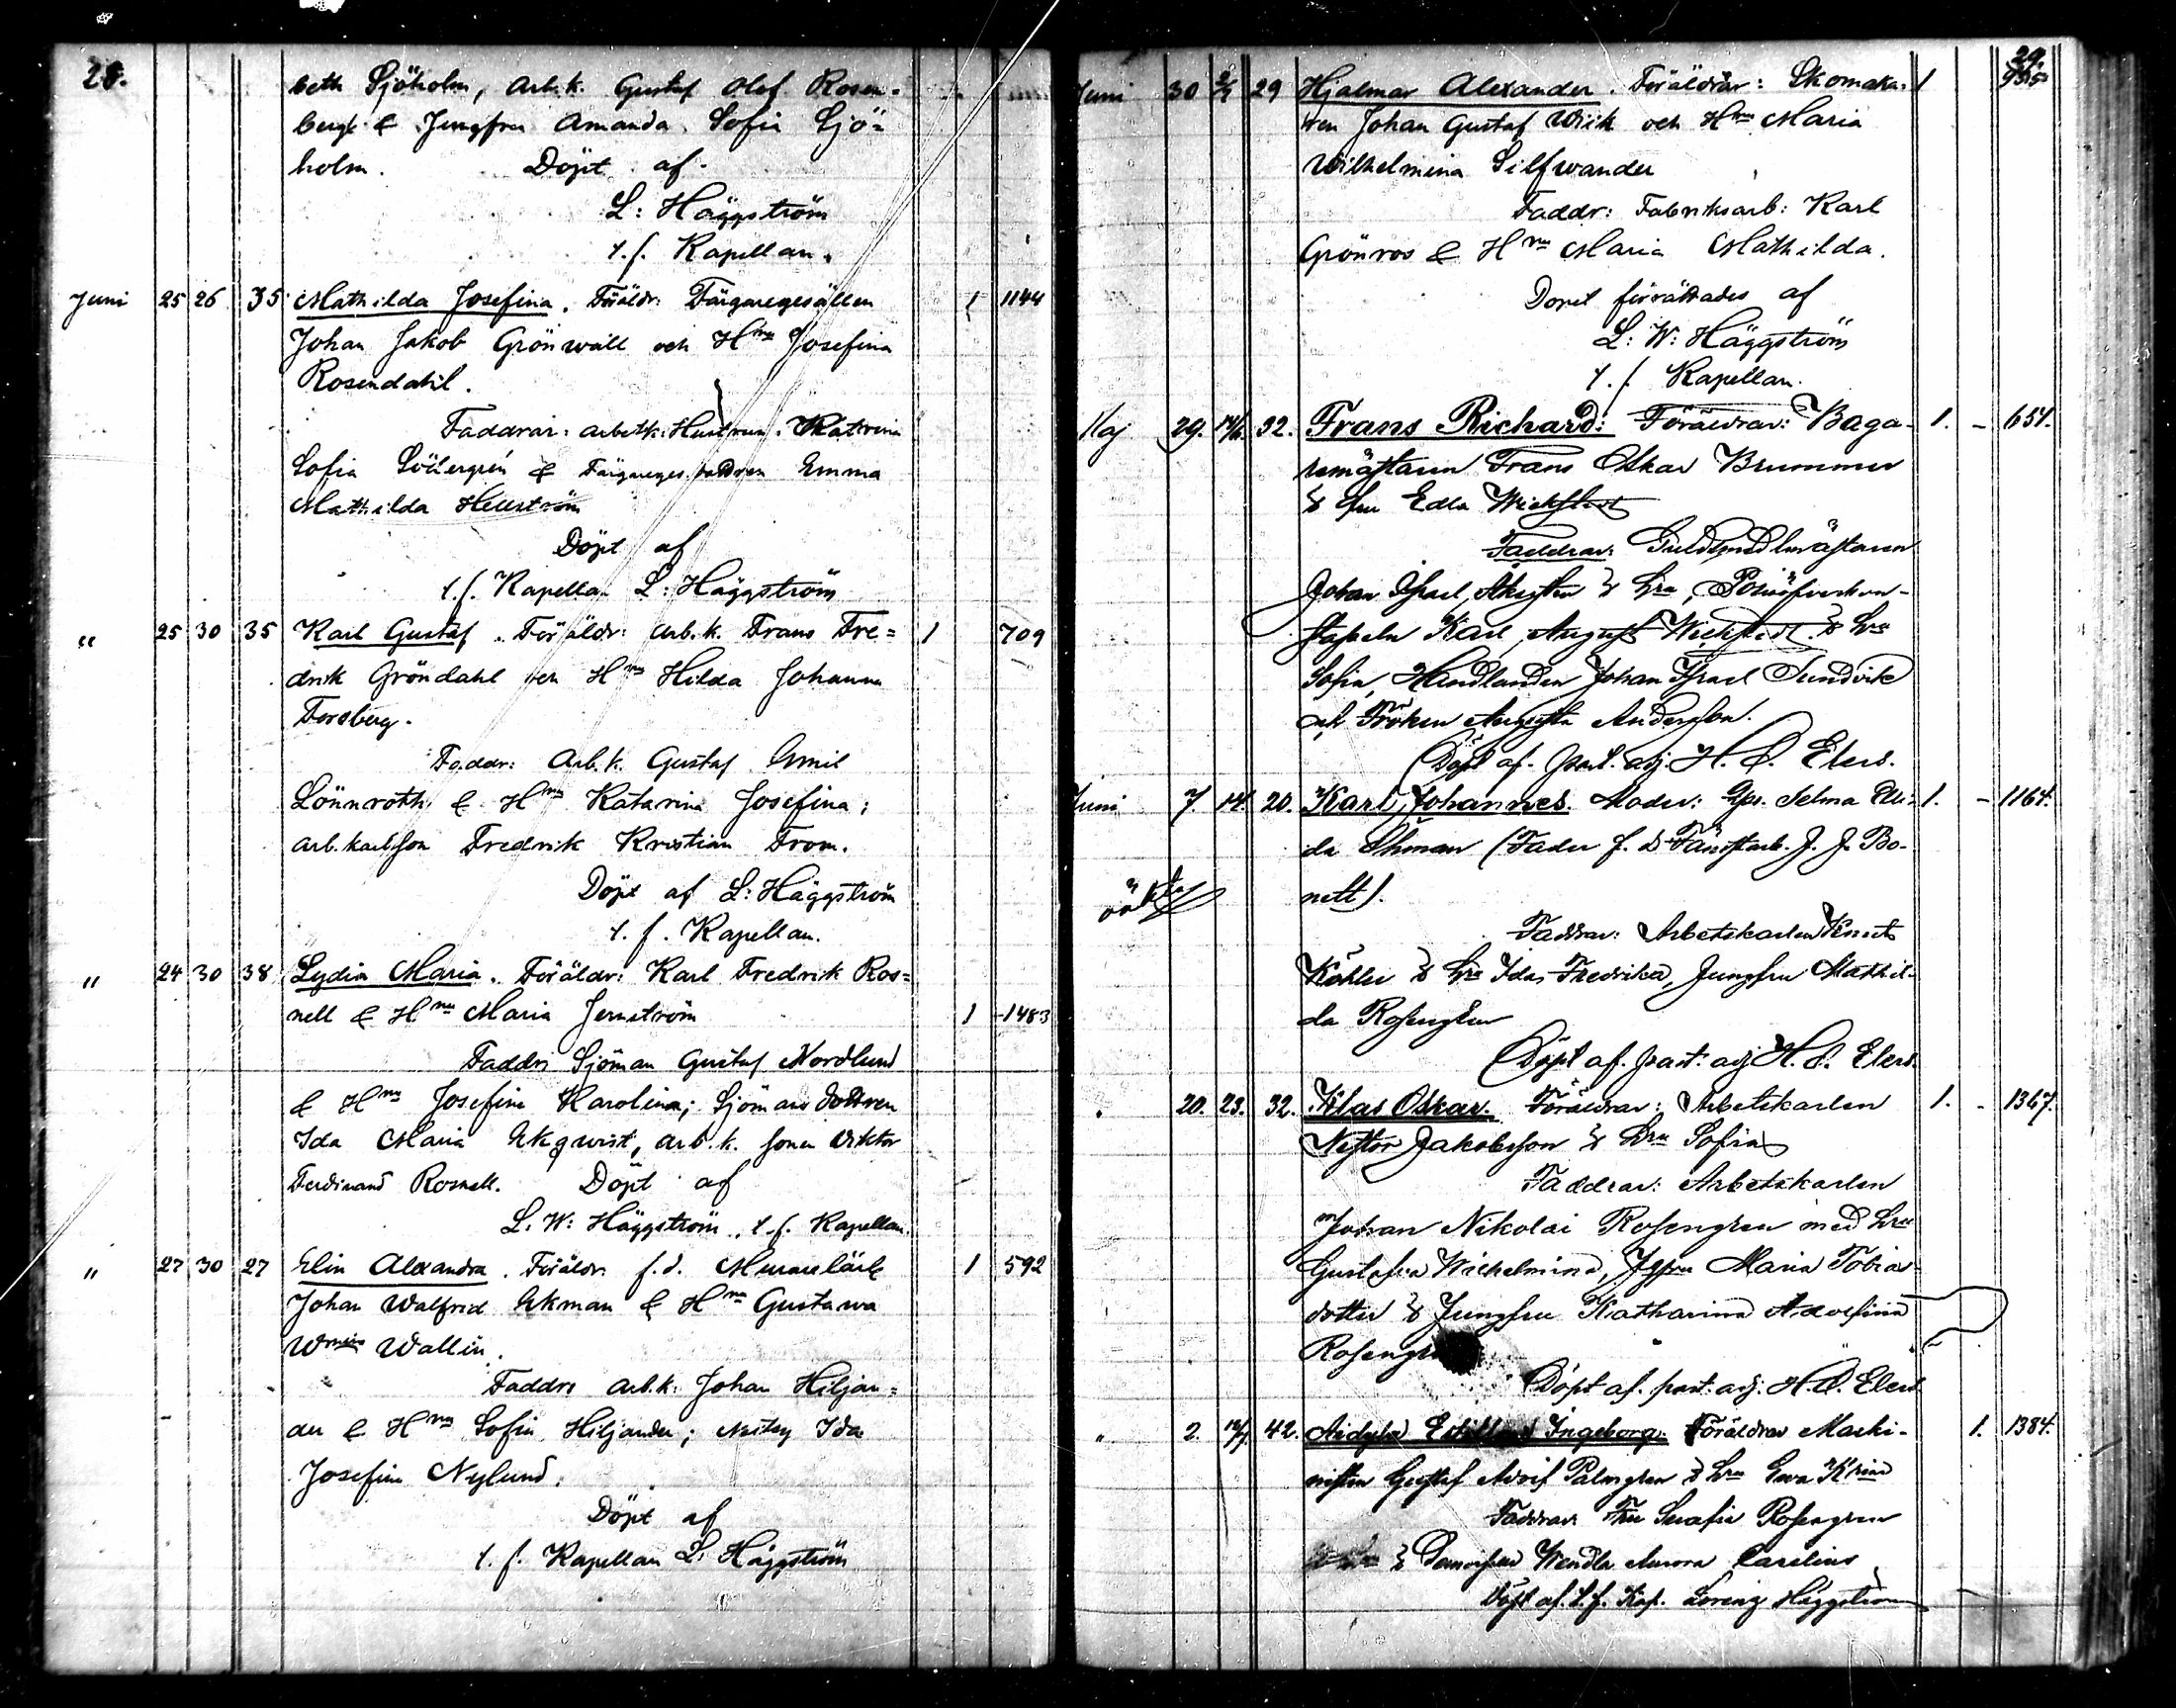 28.
beth Sjöholm, Arb.k. Gustaf Olof Rosen-
berg & Jungfru Amanda Sofia Sjö-
holm. Döpt af
L: Häggström
t.f. Kapellan.
Juni 25 26 35 Mathilda Josefina. Föräldr: Färgaregesällen 1 1144
Johan Jakob Grönwall och Hru Josefina
Rosendahl.
Faddrar: arbetk: Hustrun Katrina
Sofia Södergrén & Färgareges. Emma
Mathilda Hellström
Döpt af
t.f. Kapellan L: Häggström
" 25 30 35 Karl Gustaf. Föräldr: Arb.k. Frans Fre= 1 709
drik Gröndahl och Hru Hilda Johanna
Forsberg.
Faddr: Arb.k. Gustaf Emil
Lönnroth & Hru Katarina Josefina;
arb.karlsson Fredrik Kristian From.
Döpt af L: Häggström
t.f. Kapellan.
" 24 30 38 Lydia Maria. Föräldr: Karl Fredrik Ros=
nell & Hru Maria Jernström 1 1483
Faddr: Sjöman Gustaf Nordlund
& Hru Josefina Karolina; Sjömans dottren
Ida Maria Ekqvist, arb.k. sonen Viktor
Ferdinand Rosnell. Döpt af
L. W: Häggström, t.f. Kapellan.
" 27 30 27 Elin Alexandra. Föräldr: f.d. Murarelärl 1 592
Johan Walfrid Ekman & Hru Gustava
Wmina Wallin.
Faddr: arb.k: Johan Hiljan=
der & Hru Sofia Hiljander; Ida
Josefina Nylund.
Döpt af
t.f. Kapellan L. Häggström
29.
Juni 30 29 Hjalmar Alexander. Föräldrar: Skomaka- 1 935
ren Johan Gustaf Wiik och Hru Maria
Wilhelmina Silfwander
Faddr: Fabriksarb: Karl
Grönros & Hru Maria Mathilda.
Dopet förrättades af
L: W: Häggström
t.f. Kapellan.
Maj 29. 14/6 32. Frans Richard: Föräldrar: Baga- 1. - 654.
remästaren Frans Oskar Brummer
& fru Edla Wickstedt
Faddrar: Guldsmedsmästaren
Johan Israel & Hru,
Karl August Wickstedt & Hru
Sofia, Handlanden Johan Israel Sundvik
och Fröken Augusta Andersson.
Döpt af past. adj. H. O. Elers.
Juni 7. 14. 20. Karl Johannes. Moder: Selma Eli- 1. - 1164.
da Öhman (Fader f. d. J. J. Bo-
nett).
oäkta
Faddrar: Arbetskarlen Knut
Köhler & Hru Ida Fredrika, Jungfru Mathil-
da Rosengren
Döpt af. past. adj. H. O. Elers.
" 20. 23. 32. Klas Oskar. Föräldrar: Arbetskarlen 1. - 1367.
Nestor Jakobsson & Hru Sofia
Faddrar: Arbetskarlen
Johan Nikolai Rosengren med Hru
Gustafva Wilhelmina, Maria Tobias-
dotter & Jungfru Katharina Adolfina
Döpt af. past. adj. H. O. Elers
" 2. 42. Ingeborg. Föräldrar Maski- 1. 1384.
nisten Gustaf Adolf Palmgren & Hru Eva
Faddrar: Fru Serafia Rosengren
& Wendla Aurora Carelius
Döpt af. t.f. Kap. Lorenz Häggström